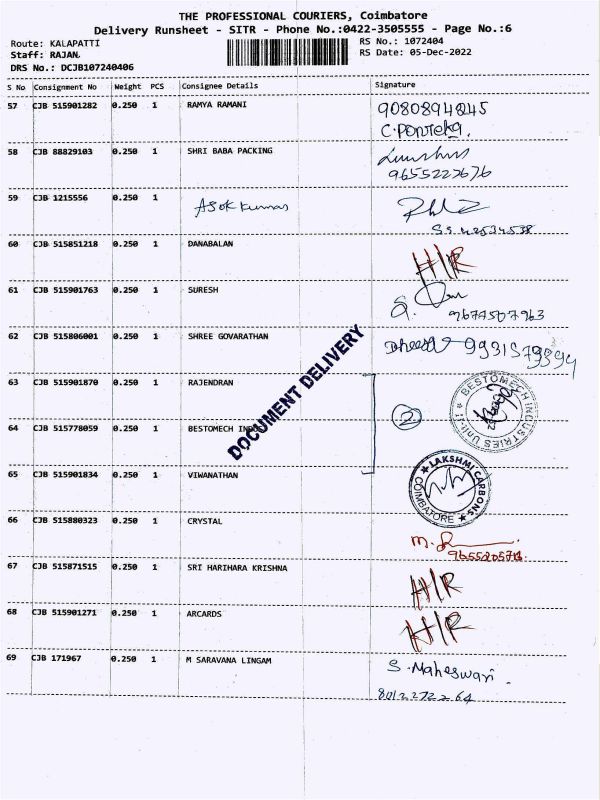 THE PROFESSIONAL COURIERS, Coimbatore
Delivery Runsheet - SITR - Phone No.:0422-3505555 - Page No.:6
Route: KALAPATTI
RS No.: 1072404
Staff: RAJAN.
RS Date: 05-Dec-2022
DRS No.: DCJB107240406
S No Consignment No Weight PCS Consignee Details Signature
57 CJB 515901282 0.250 1 RAMYA RAMANI 9080894845
C.Ponreka.
58 CJB 88829103 0.250 1 SHRI BABA PACKING
9655227676
59 CJB 1215556 0.250 1 Asok kumar
60 CJB 515851218 0.250 1 DANABALAN H/R
61 CJB 515901763 0.250 1 SURESH
9677507963
62 CJB 515806001 0.250 1 SHREE GOVARATHAN
DOCUMENT DELIVERY
63 CJB 515901870 0.250 1 RAJENDRAN
BESTOMECH INDUSTRIES Unit-1
2
64 CJB 515778059 0.250 1 BESTOMECH INDUS
65 CJB 515901834 0.250 1 VIWANATHAN
LAKSHMI CARBONS
COIMBATORE
66 CJB 515880323 0.250 1 CRYSTAL
67 CJB 515871515 0.250 1 SRI HARIHARA KRISHNA H/R
68 CJB 515901271 0.250 1 ARCARDS H/R
69 CJB 171967 0.250 1 M SARAVANA LINGAM S. Maheswari
8012272264